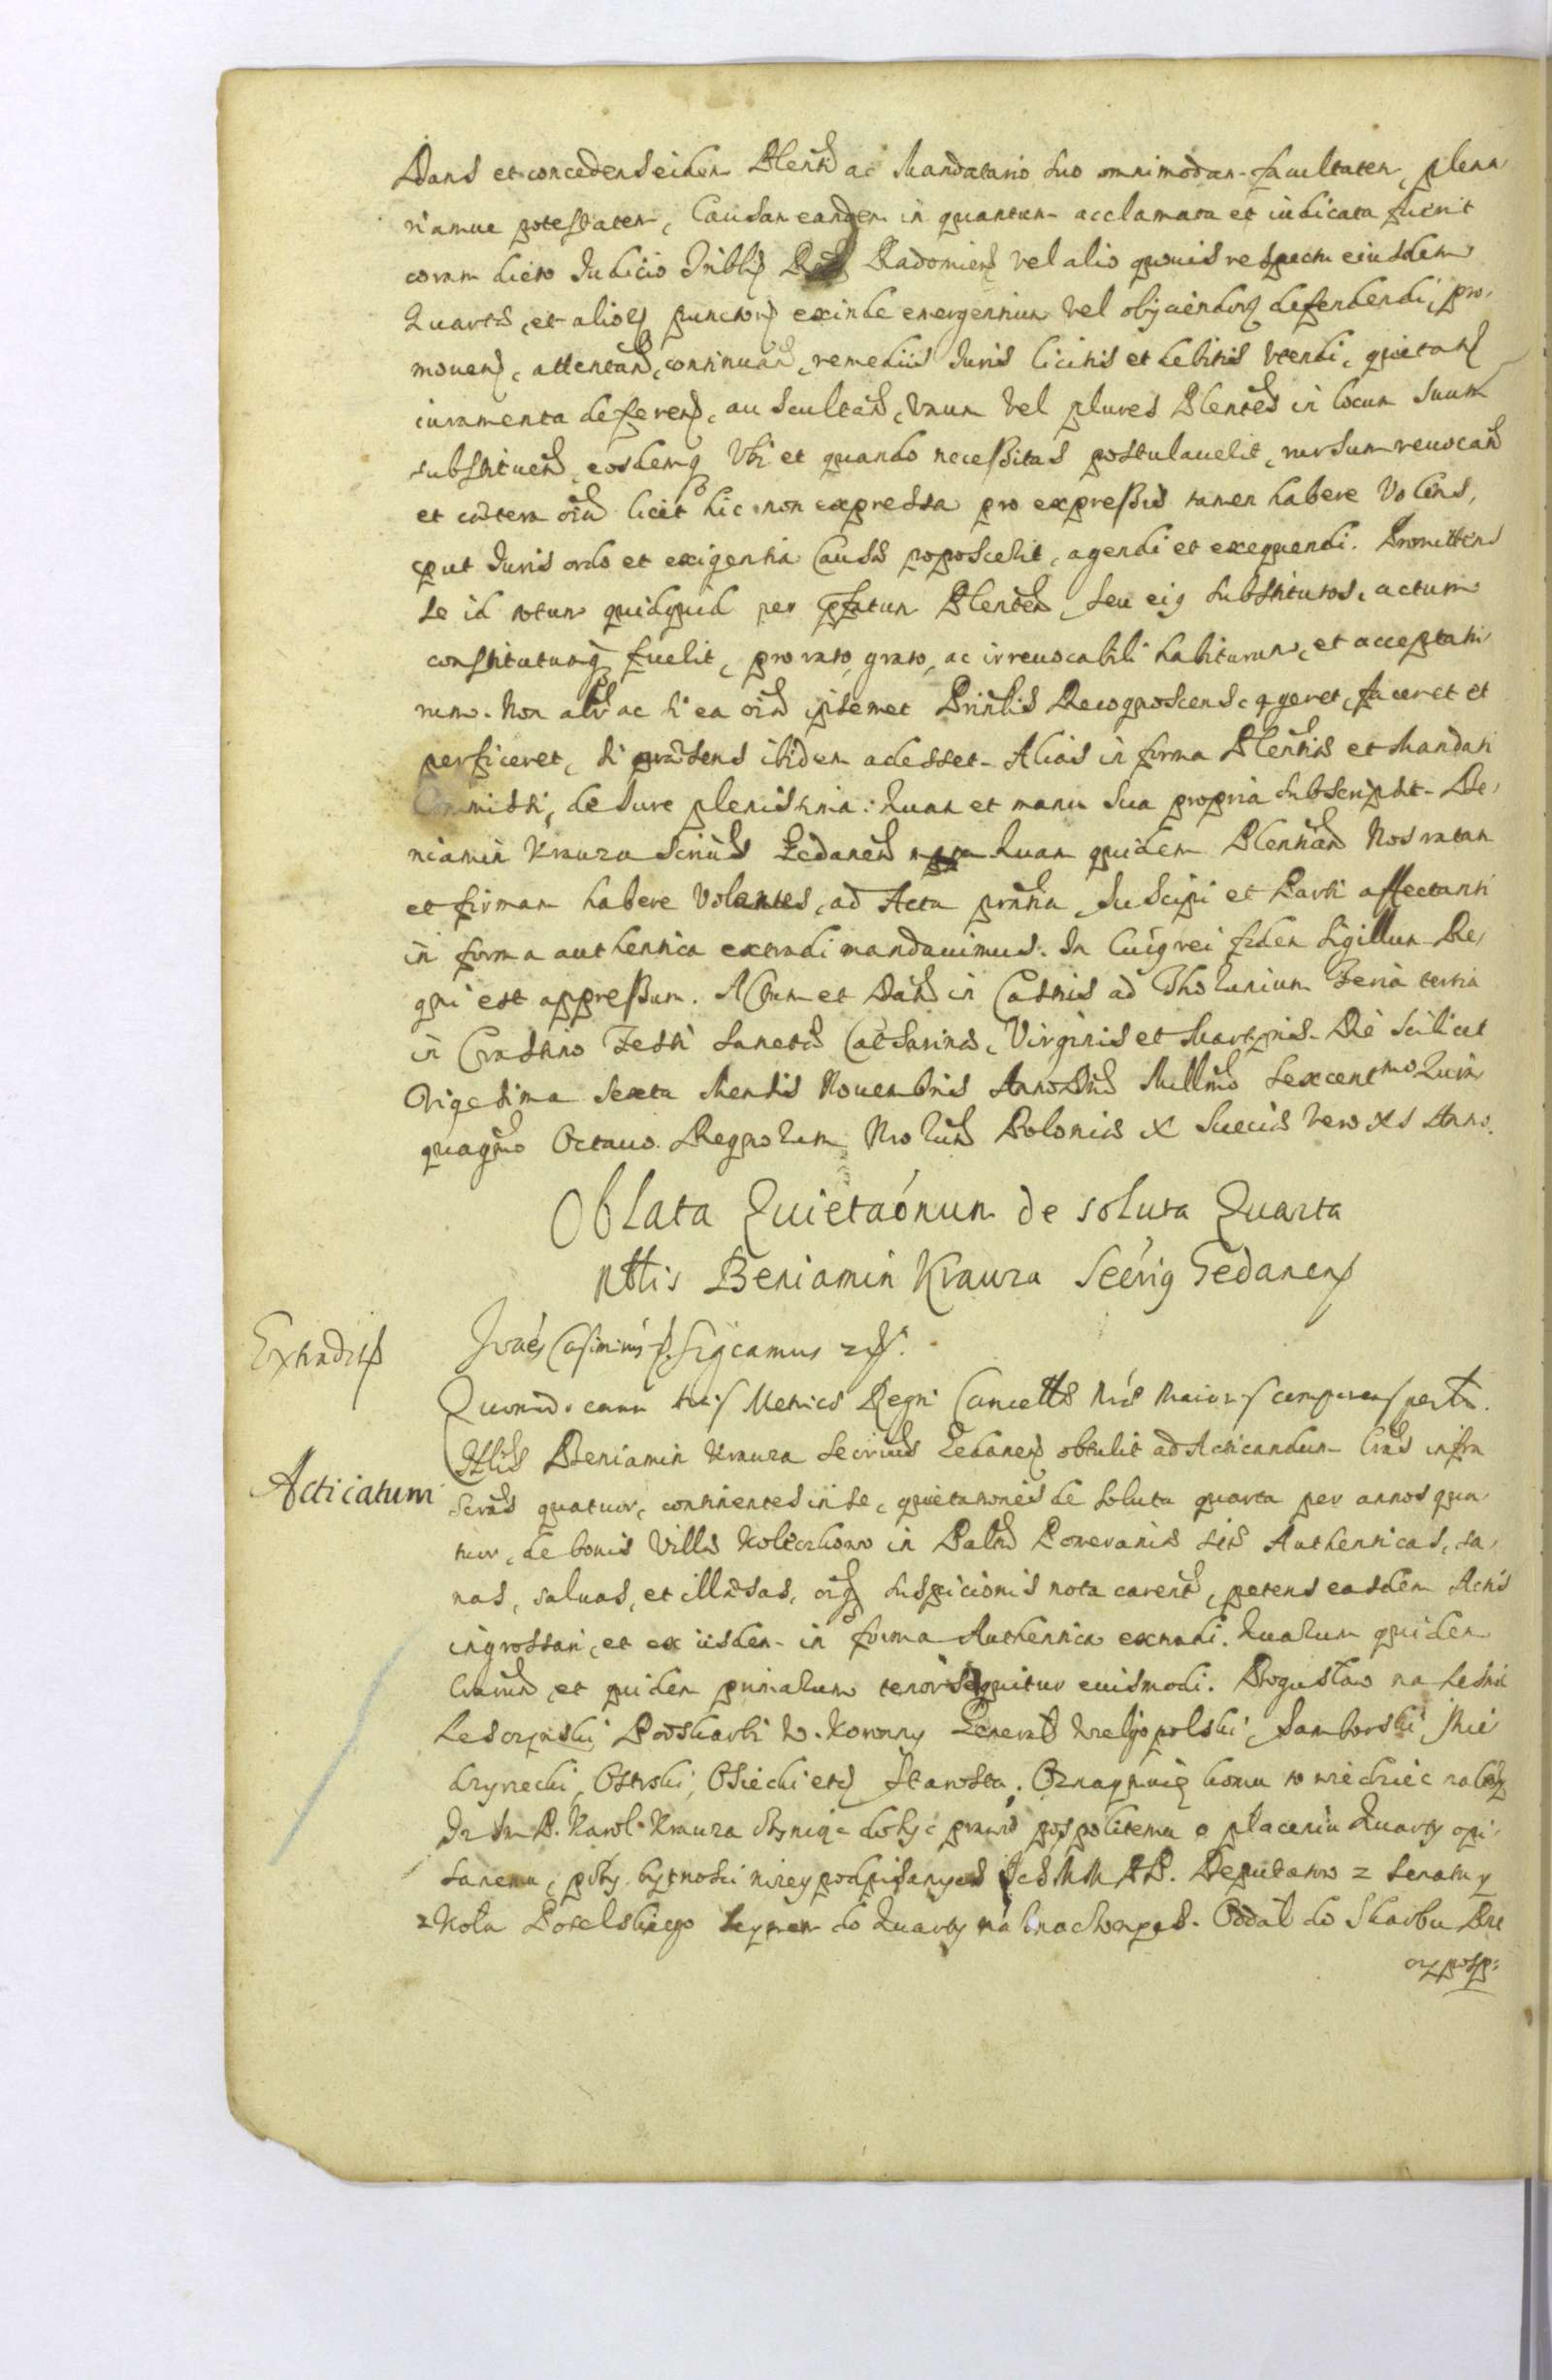 Dans et concedens eidem Plenti ac Mandatario suo omnimodam facultatem, plena
riamue potestatem, Causam eandem in quantum acclamata et iudicata fuerit
coram dicto Iudicio Triblis Radomien vel alio quouis respectu eiusdem
Quartæ, et alior punctor exinde emergentium vel obijciendor defendendi, pro
mouen, attentan, continuan, remediis Iuris licitis et debitis vtendi, quietan
iuramenta deferen, auscultan, vnum vel plures Plentes in locum suum
substituen, eosdemq Vbi et quando necessitas postulauerit, rursum reuocan
et cætera oia licet hic non expressa pro expressis tamen habere Volens,
put Iuris ordo et exigentia Causæ poposcerit, agendi et exequendi. Promittens
se id totum quidquid per pfatum Plenten, seu eig substitutos, actum
constitutumq fuerit, pro rato, grato, ac irreuocabili habiturum, et acceptatu
rum. Non alr ac si ea oia ipsemet Prinlis Recognoscens ageret, faceret et
perficeret, si præsens ibidem adesset. Alias in forma Plentiæ et Mandati
Commissi, de Iure plenissima. Quam et manu sua propria subscripsit. Be
niamin Krauza Scrius Gedanen Quam quidem Plentiam Nos ratam
et firmam habere Volentes, ad Acta prntia suscipi et Parti affectanti
in forma authentica extradi mandauimus. In Cuig rei fidem Sigillum Re
gni est appressum. Actum et Dat in Castris ad Thorunium Feria tertia
in Crastino Festi Sanctæ Catharinæ, Virginis et Martyris. Die scilicet
Vigesima Sexta Mensis Nouembris Anno Dni Millmo Sexcentmo Quin
quagmo Octauo. Regnorum Nrorum Poloniæ X Sueciæ vero XI Anno.
Oblata Quietaonum de soluta Quarta
Nblis Beniamin Krauza Secrig Gedanen
Extradit
Ioaes Casimirus Sigcamus
Quomodo coram Actis Metrices Regni Cancellæ Nræ Maioris comparens perslr.
Nblis Beniamin Krauza Secrius Gedanen obtulit ad Acticandum Lras infra
Acticatum
scras quatuor, continentes in se, quietationes de soluta quarta per annos qua
tuor, de bonis Villæ Koliczkowo in Palnu Pomeraniæ sitæ Authenticas, sa
nas, saluas, et illæsas, oiq suspicionis nota caren, petens easdem Actis
ingrossari, et ex iisdem in forma Authentica extradi. Quarum quidem
Lrarum, et quidem primarum tenor sequitur eiusmodi. Bogusław na Lesnie
Lesczynski Podskarbi W. Koronny Generał Wielgopolski, Samborski, Mie
dzyrzecki, Ostrski, Osiecki etc Starosta. Oznaymuię komu to wiedziec nalezy
Iz Im P. Karol Krauza Czyniąc dosyć prawu pospolitemu o płaceniu Quarty opi
sanemu, przy bytnosci nizey podpisanych Ich MM PP. Deputatow z Senatu y
z Koła Poselskiego Seymem do Quarty naznaczonych. Oddał do Skarbu Rze
czyposp: